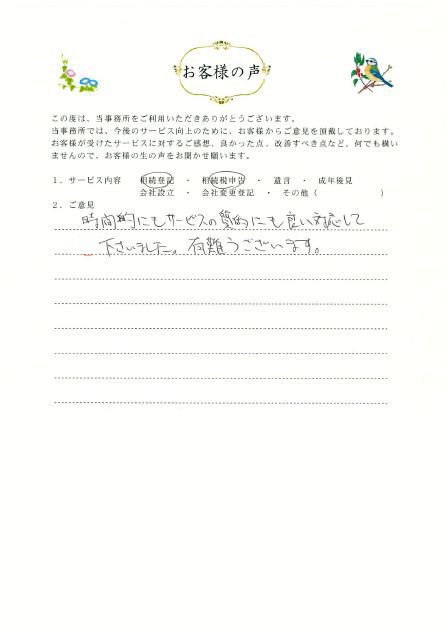 お客様の声
この度は、当事務所をご利用いただきありがとうございます。
当事務所では、今後のサービス向上のために、お客様からご意見を頂戴しております。
お客様が受けたサービスに対するご感想、良かった点、改善すべき点など、何でも構い
ませんので、お客様の生の声をお聞かせ願います。
1．サービス内容　相続登記　・　相続税申告　・　遺言　・　成年後見
会社設立　・　会社変更登記　・　その他（　　　　　）
2．ご意見
時間的にもサービスの質的にも良い対応して
下さいました。有難うございます。